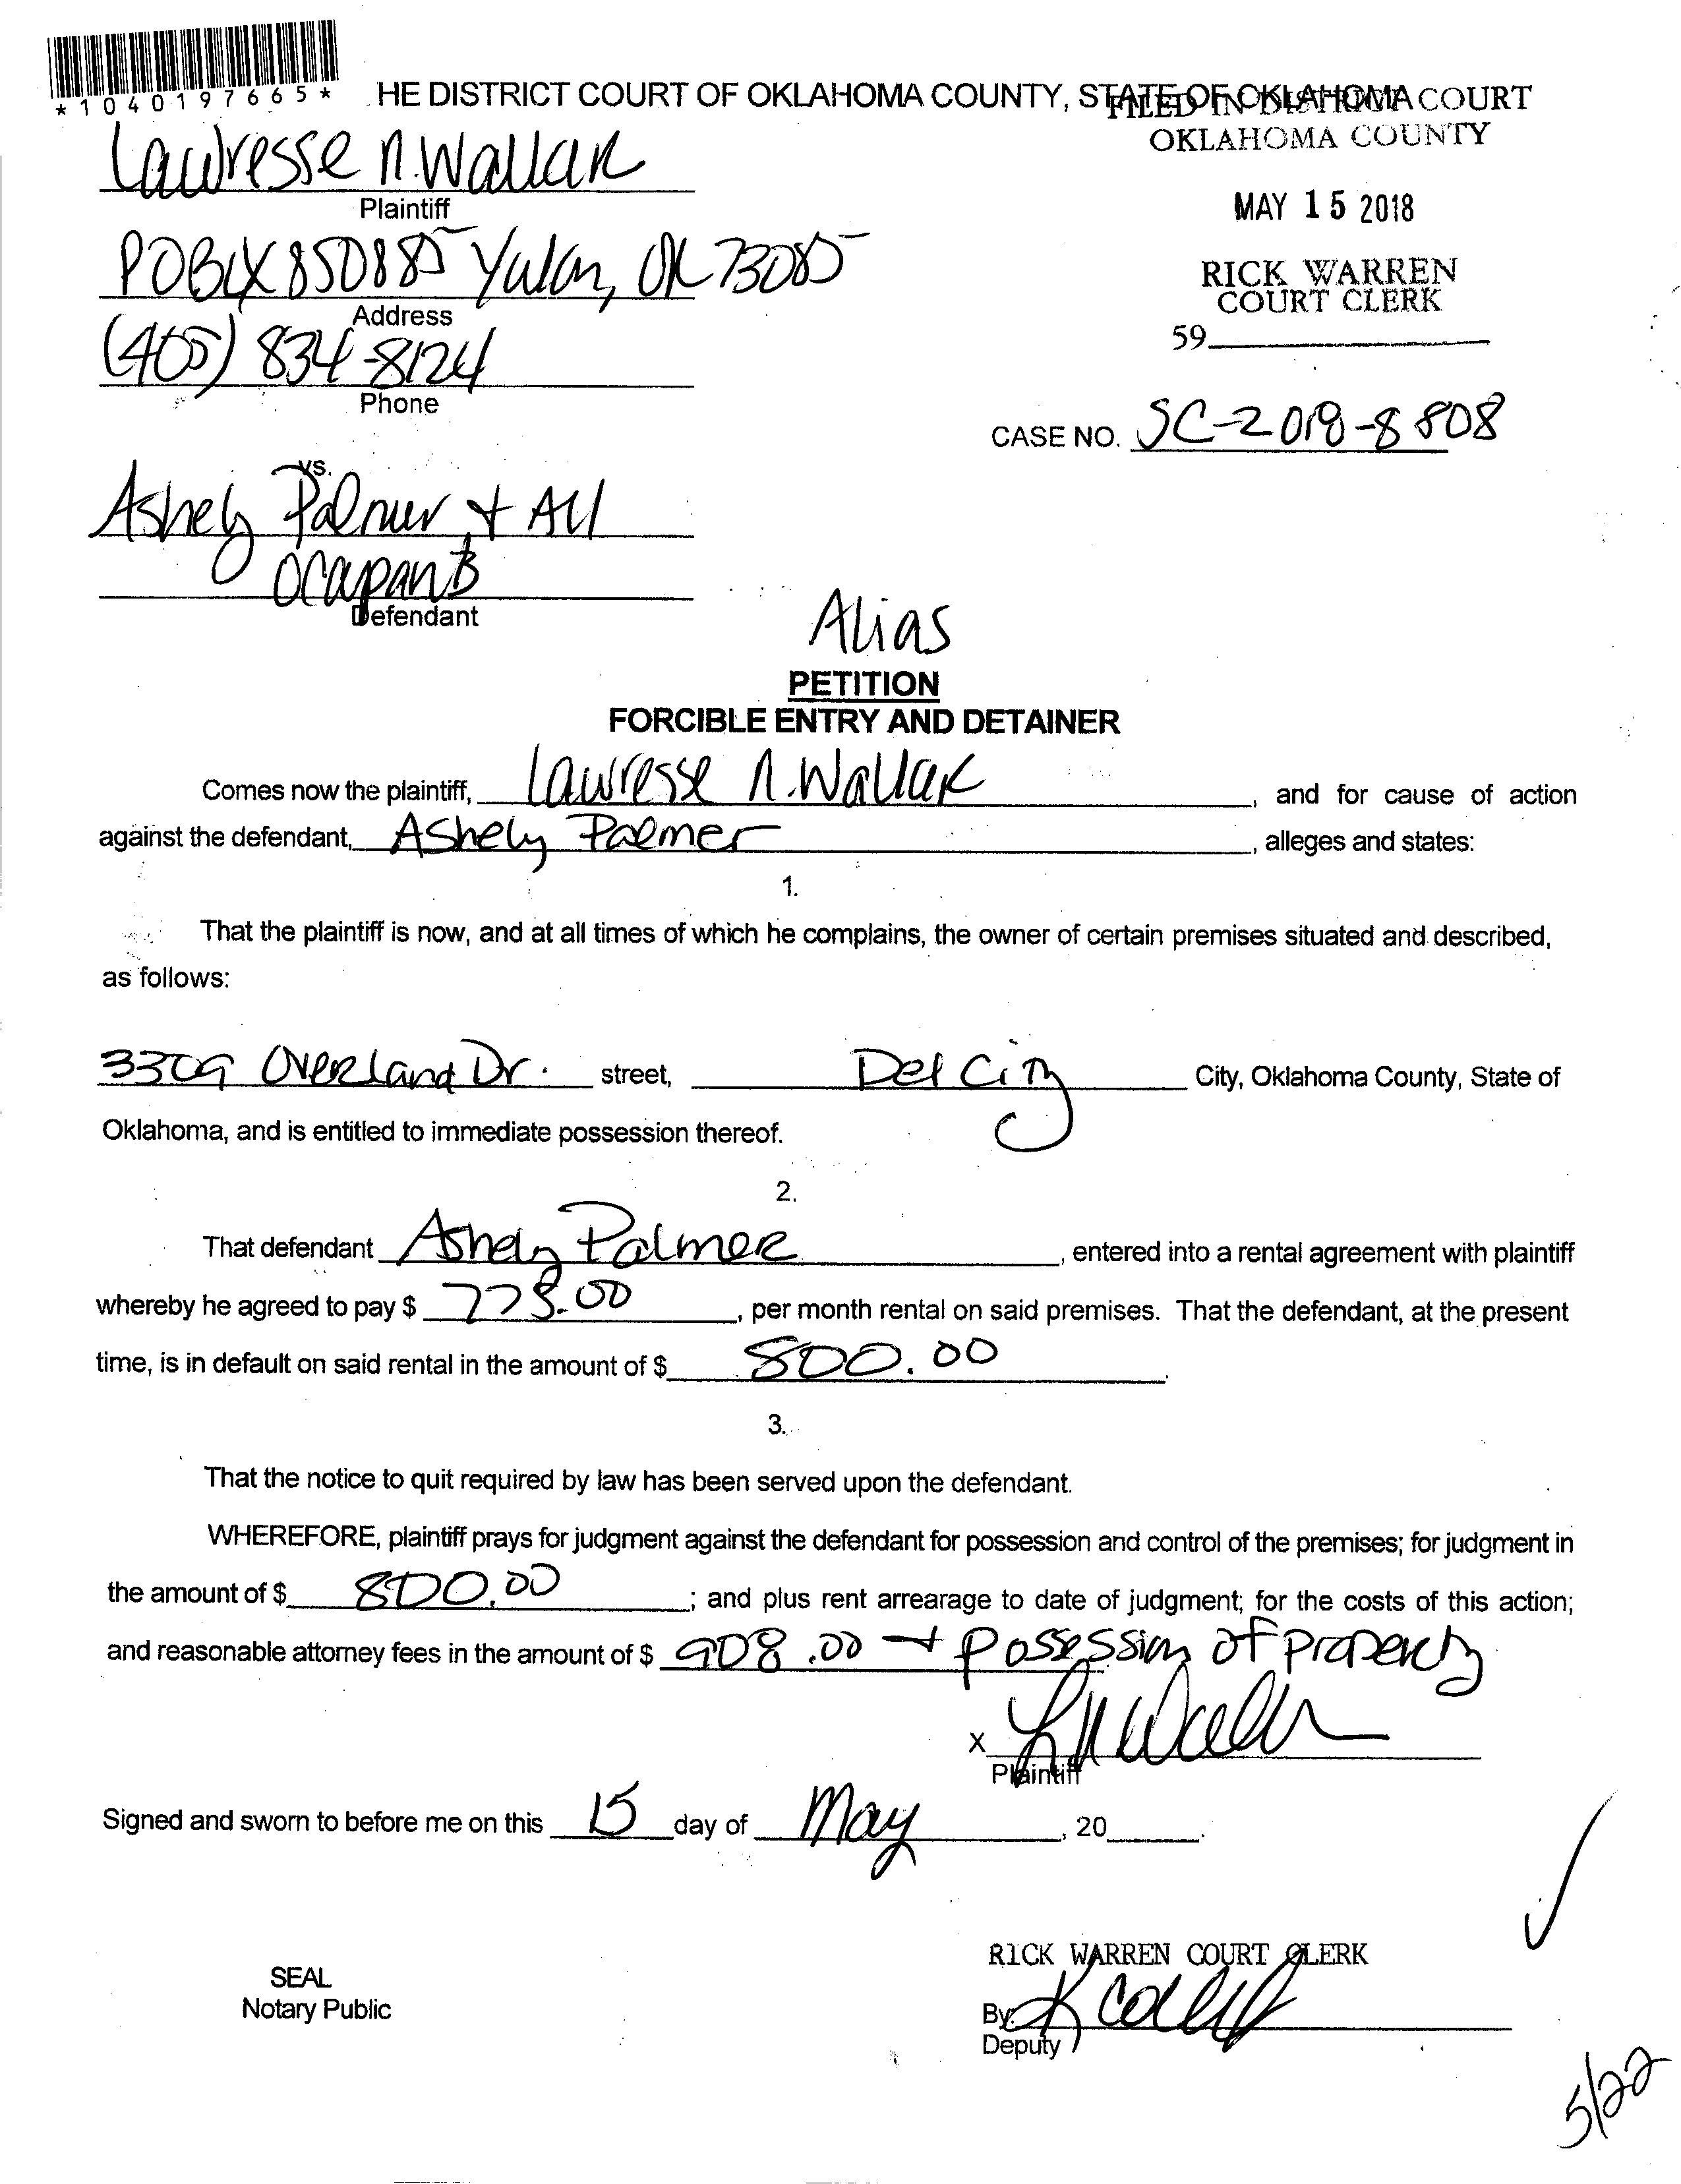 *1040197665*
HE DISTRICT COURT OF OKLAHOMA COUNTY, STATE OF OKLAHOMA
FILED IN DISTRICT COURT
OKLAHOMA COUNTY
MAY 15 2018
RICK WARREN
COURT CLERK
59
Lawresse N. Wallak
Plaintiff
PO Box 850885 Yukon, OK 73085
Address
(405) 834-8124
Phone
CASE NO. SC-2018-8808
vs.
Ashely Palmer + All
Ocupants
Defendant
Alias
PETITION
FORCIBLE ENTRY AND DETAINER
Comes now the plaintiff, Lawresse N. Wallak, and for cause of action
against the defendant, Ashely Palmer, alleges and states:
1.
That the plaintiff is now, and at all times of which he complains, the owner of certain premises situated and described,
as follows:
3309 Overland Dr. street, Del City City, Oklahoma County, State of
Oklahoma, and is entitled to immediate possession thereof.
2.
That defendant Ashely Palmer, entered into a rental agreement with plaintiff
whereby he agreed to pay $ .00, per month rental on said premises. That the defendant, at the present
time, is in default on said rental in the amount of $ 800.00.
3.
That the notice to quit required by law has been served upon the defendant.
WHEREFORE, plaintiff prays for judgment against the defendant for possession and control of the premises; for judgment in
the amount of $ 800.00; and plus rent arrearage to date of judgment; for the costs of this action;
and reasonable attorney fees in the amount of $ 908.00 + Possession of Property
X
Plaintiff
Signed and sworn to before me on this 15 day of May, 20.
RICK WARREN COURT CLERK
SEAL
Notary Public
By:
Deputy
5/22